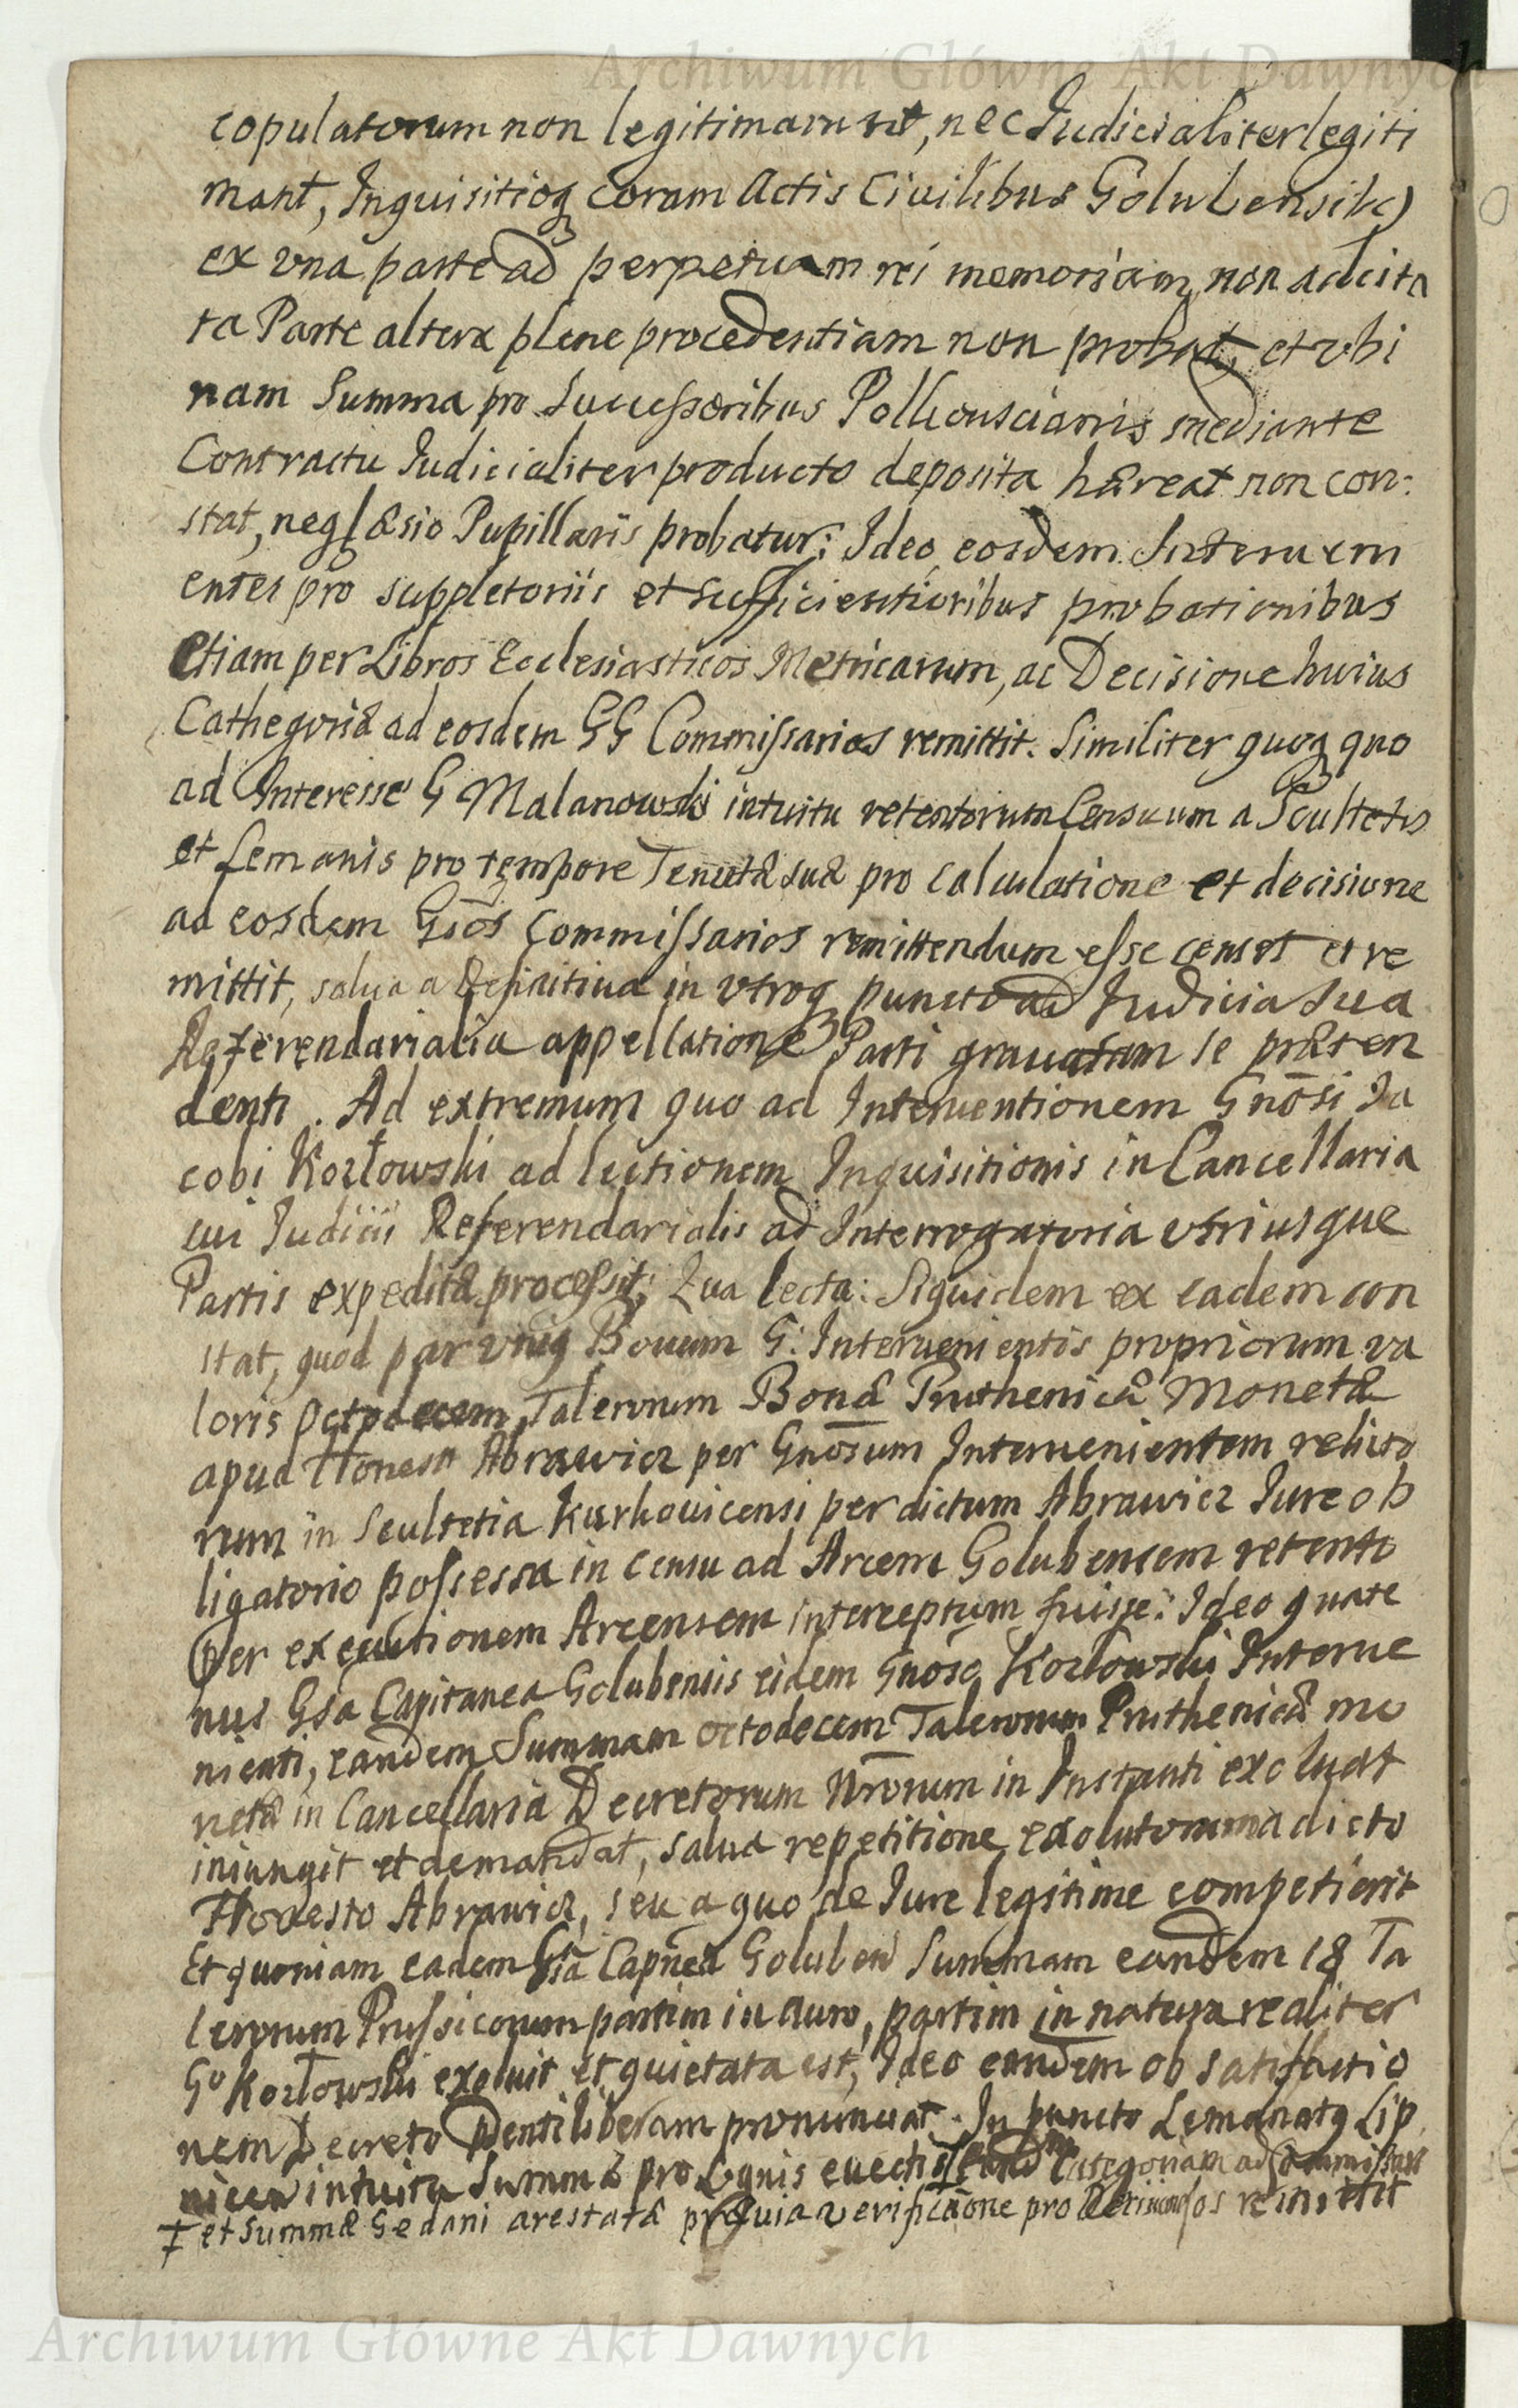 Archiwum Główne Akt Dawnych
copulatorum non legitimarunt, nec Judicialiter legiti
mant, Inquisitioq coram Actis Civilibus Golubensib)
ex vna parte ad perpetuam rei memoriam, non adcita
ta Parte altera plene procedentiam non probat, et vbi
nam Summa pro Successoribus mediante
Contractu Judicialiter producto deposita hæreat non con:
stat, neq læsio Pupillaris probatur: Ideo eosdem Interueni
entes pro suppletoriis et sufficientioribus probationibus
etiam per Libros Ecclesiasticos Metricarum, ac Decisione huius
Cathegoriæ ad eosdem GG Commissarios remittit. Similiter quoq quo
ad Interesse G Malanowski intuitu retentorum Censuum a Scultetis
et Lemanis pro tempore Tenutæ suæ pro calculatione et decisione
ad eosdem Gsos Commissarios remittendum esse censet et re
mittit, salua a Definitiua in vtroq puncto ad Judicia sua
Referendarialia appellatione Parti grauatam se præten
denti. Ad extremum quo ad Interuentionem Gnosi Ja
cobi Kozłowski ad lectionem Inquisitionis in Cancellaria
sui Judicii Referendarialis ad Interrogatoria vtriusque
Partis expeditæ processit; Qua lecta: Siquidem ex eadem con
stat, quod par vnũ Bouum G: Interuenientis propriorum va
loris octodecem Talerorum Bonæ Pruthenicæ Monetæ
apud Honestũ Abrawicz per Gnosum Interuenientem relicto
rum in Scultetia Kurkouicensi per dictum Abrawicz Jure ob
ligatorio possessa in censu ad Arcem Golubensem retento
per executionem Arcensem interceptum fuisse: Ideo quate
nus Gsa Capitanea Golubensis eidem Gnoso Kozłowski Interue
nienti, eandem Summam octodecem Talerorum Pruthenicæ mo
netæ in Cancellaria Decretorum Nrorum in Instanti exoluat
iniungit et demandat, salua repetitione exolutorum a dicto
Honesto Abrawicz, seu a quo de Jure legitime competierit
Et quoniam eadem Gsa Capnea Goluben Summam eandem 18 Ta
lerorum Prussicorum partim in Auro, partim in natura realiter
Go Kozłowski exoluit et quietata est, Ideo eandem ob satisfactio
nem Decreto Pnti liberam pronunciat. In puncto Lip
nicen intuitu Summæ pro Lignis euectis ‡ Categoriam ad Commissari
‡ et Summæ Gedani arestatæ verificãone pro os remittit
Archiwum Główne Akt Dawnych